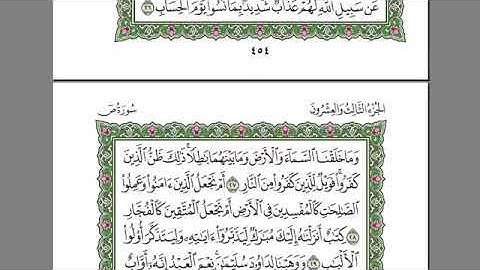 عَن سَبِيلِ ٱللَّهِ لَهُمْ عَذَابٌ شَدِيدٌۢ بِمَا نَسُوا۟ يَوْمَ ٱلْحِسَابِ ٢٦
٤٥٤
الجزء الثالث والعشرون
سورة ص
وَمَا خَلَقْنَا ٱلسَّمَآءَ وَٱلْأَرْضَ وَمَا بَيْنَهُمَا بَٰطِلًا ۚ ذَٰلِكَ ظَنُّ ٱلَّذِينَ
كَفَرُوا۟ ۚ فَوَيْلٌ لِّلَّذِينَ كَفَرُوا۟ مِنَ ٱلنَّارِ ٢٧ أَمْ نَجْعَلُ ٱلَّذِينَ ءَامَنُوا۟ وَعَمِلُوا۟
ٱلصَّٰلِحَٰتِ كَٱلْمُفْسِدِينَ فِى ٱلْأَرْضِ أَمْ نَجْعَلُ ٱلْمُتَّقِينَ كَٱلْفُجَّارِ
٢٨ كِتَٰبٌ أَنزَلْنَٰهُ إِلَيْكَ مُبَٰرَكٌ لِّيَدَّبَّرُوٓا۟ ءَايَٰتِهِۦ وَلِيَتَذَكَّرَ أُو۟لُوا۟
ٱلْأَلْبَٰبِ ٢٩ وَوَهَبْنَا لِدَاوُۥدَ سُلَيْمَٰنَ ۚ نِعْمَ ٱلْعَبْدُ ۖ إِنَّهُۥٓ أَوَّابٌ